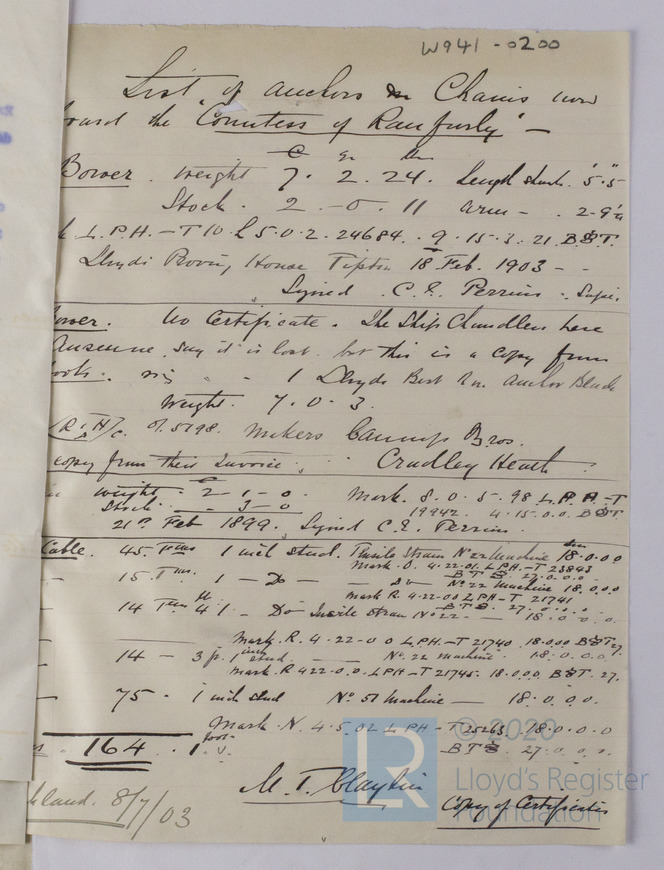 W941-0200
List of Anchors & Chains now
board the "Countess of Ranfurly" —
C Qr lbs
Bower. Weight 7. 2. 24. Length shank. 5'.5"
Stock. 2. -0. 11 arm - . 2-9½
L.P.H. - T 10 . 5.0.2. 24684. 9. 15. 3. 21 B.&T.
Lloyds Proving House Tipton 18 Feb. 1903 - -
Signed . C. E. Perrins - Supr.
Bower. No Certificate. The Ship Chandlers here
say it is lost. but this is a copy from
1 Lloyds Best Anchor
Weight. 7. 0. 3.
R.H/c. 5798. Makers Bros.
copy from their Invoice. Cradley Heath
Weight 2-1-0. Mark. 8. 0. 5. 98 L.P.H.-T
Stock. - 3-0 19942. 4.15.0.0. B&T
21st Feb 1899. Signed C. E. Perrins
Cable. 45. Fms 1 inch stud. Tensile Strain No 22 Machine 18.0.0.0
Mark. O. 4.22.01. L.P.H.-T 23843
B T S. 27.0.0.0
15. Fms. 1 - Do - - Do - No 22 Machine 18.0.0.0
Mark R. 4.22.00 L.P.H-T 21741
B T S. 27.0.0.0.
14 Fms 1 - Do Tensile Strain No 22 — 18.0.0.0.
Mark. R. 4-22-00 L.P.H.-T 21740. 18.000 B&T 27.
14 - 3 f. 1 inch stud. — No. 22 Machine. 18.0.0.0.
Mark R 4.22.0.0. L.P.H.-T 21745. 18.0.0.0. B&T. 27.
75. 1 inch stud No 51 Machine — 18.0.0.0.
Mark. N. 4.5.02 L.P.H-T 25263 18.0.0.0
164. 1 foot BTS. 27.0.0.0.
M. T. Clayton
Copy of Certificates
8/7/03
© 2020
LR
Lloyd's Register
Foundation